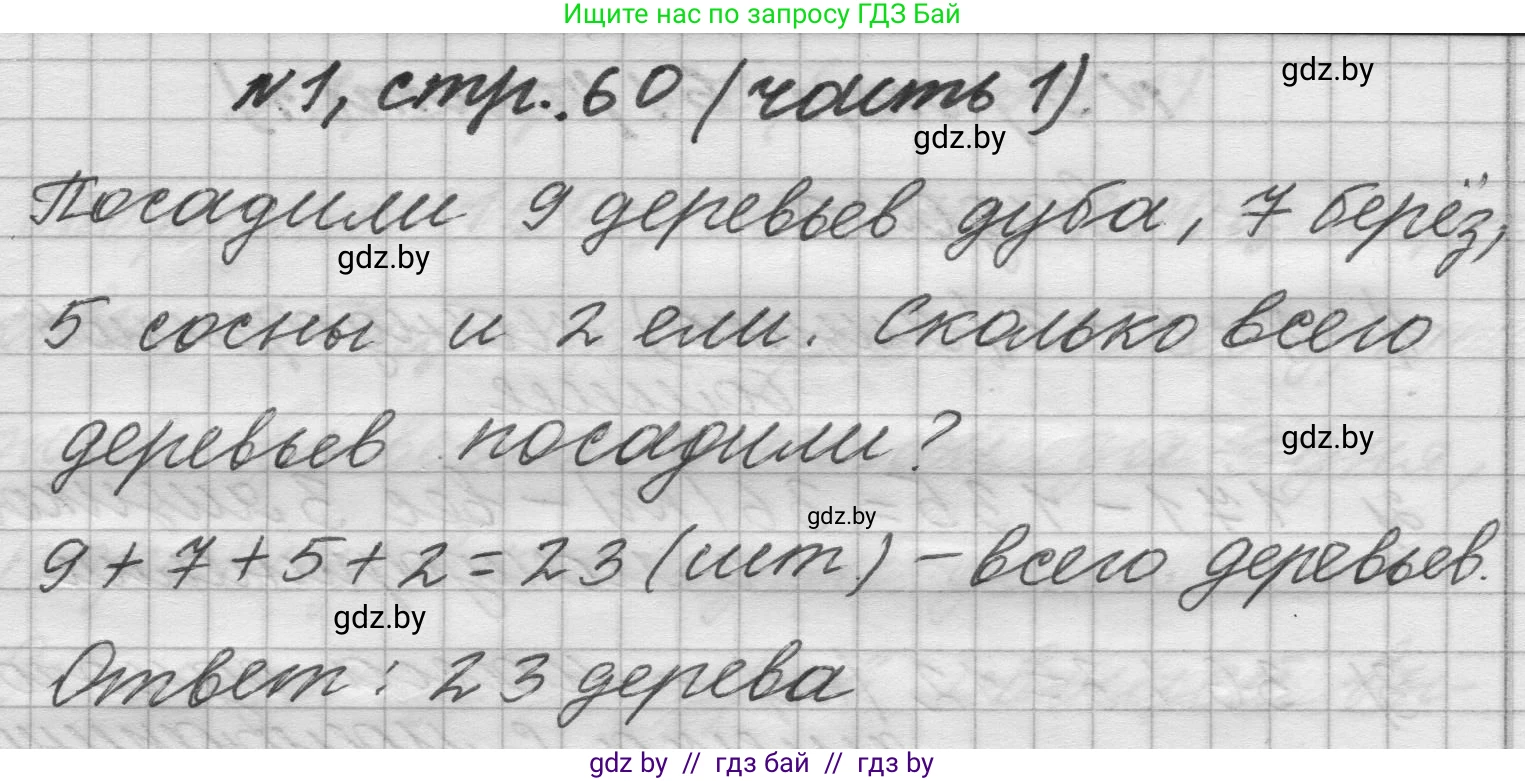 Ищите нас по запросу ГДЗ Бай
№1, стр. 60 (часть 1).
gdz.by
gdz.by
Посадили 9 деревьев дуба, 7 берёз,
gdz.by
5 сосны и 2 ели. Сколько всего
деревьев посадили?
gdz.by
gdz.by
9 + 7 + 5 + 2 = 23 (шт.) - всего деревьев.
gdz.by
Ответ: 23 дерева
gdz by // гдз бай // гдз by